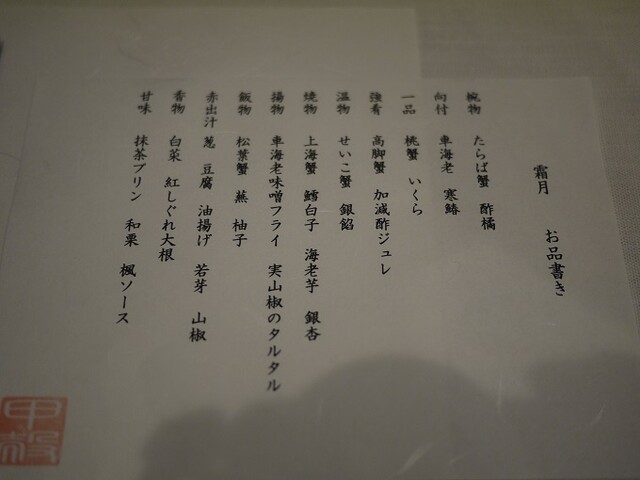 霜月　お品書き
椀物　たらば蟹　酢橘
向付　車海老　寒鰆
一品　桃蟹　いくら
強肴　高脚蟹　加減酢ジュレ
温物　せいこ蟹　銀餡
焼物　上海蟹　鱈白子　海老芋　銀杏
揚物　車海老味噌フライ　実山椒のタルタル
飯物　松葉蟹　蕪　柚子
赤出汁　葱　豆腐　油揚げ　若芽　山椒
香物　白菜　紅しぐれ大根
甘味　抹茶プリン　和栗　楓ソース
甲殻